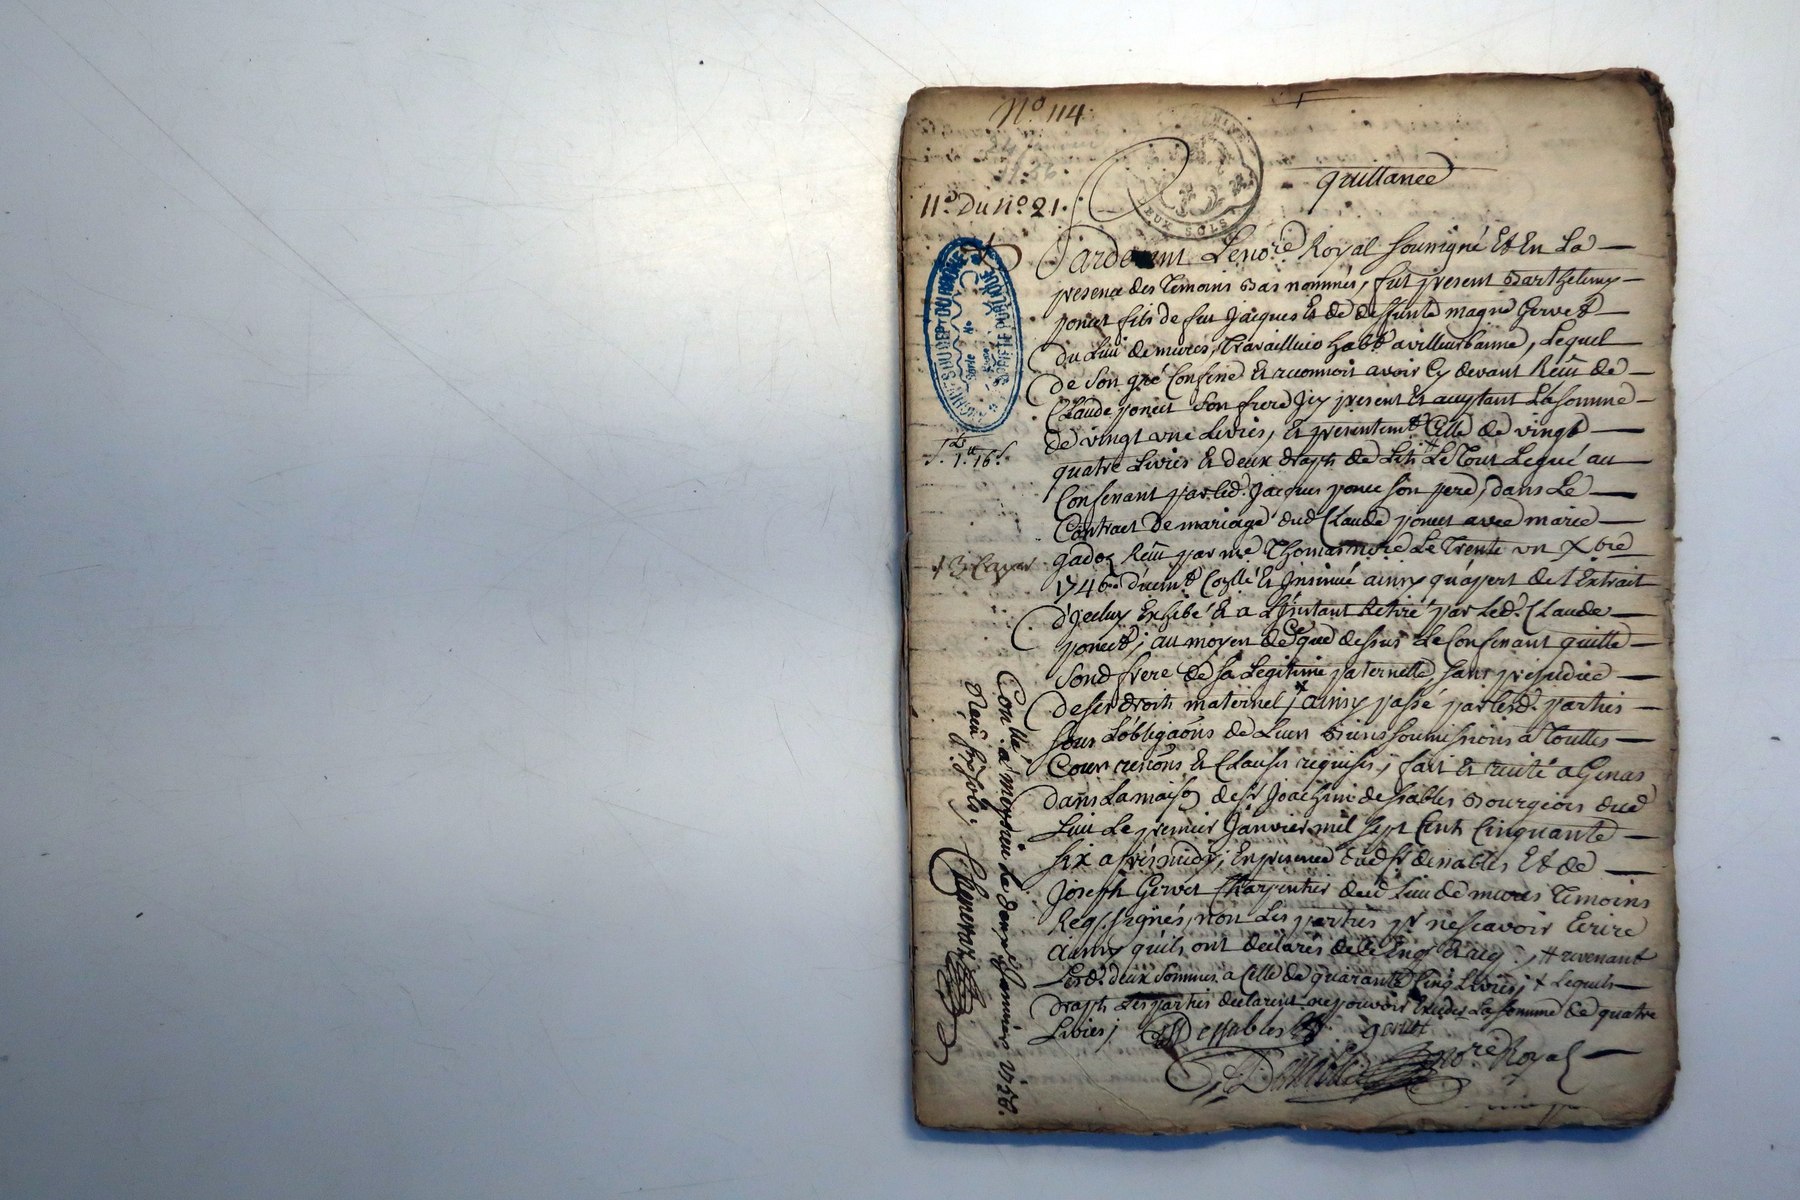 N° 114
quittance
11e Du n° 21.
DEUX SOLS
Pardevant Le no.re Royal soussigné Et En La
presence des temoins bas nommés, fut present Barthelemy
poncet fils de feu Jacques Et de deffunte magne Gervet
du Lieu de mures, travailleur habt a villeurbanne, Lequel
de son gré Confesse Et reconnoit avoir Cy devant Reçu de
Claude poncet son frere Icy present Et acceptant La somme
de vingt une Livres, Et presentemt Celle de vingt
quatre Livres Et deux draps de Lit # Le tout Legué au
Confessant par led. Jacques poncet son pere, dans Le
Contract de mariage dud Claude poncet avec marie
gadoz Reçu par me Thomas no.re Le trente un Xbre
1746. duemt Collé Et Insinué ainsy qu'apert de l'Extrait
d'Iceluy Exhibé Et a L'Instant Retiré par Led. Claude
poncet; au moyen de Ce que dessus Le Confessant quitte
sond frere de sa Legitime paternelle, sans prejudice
de ses droits maternels, ainsy passé par lesd. parties
sous L'obligaons de Leurs Biens soumissions a touttes
Cours renons Et Clauses requises, fait Et recité a Genas
dans La maison de sr Joachim dessables Bourgeois dud
Lieu Le premier Janvier mil sept Cent Cinquante
six apres midy, En presence dud sr dessables Et de
Joseph Gervet Charpentier dud Lieu de mures temoins
Req. signés, non Les parties pr ne scavoir Ecrire
ainsy quils ont declarés de Ce Enq. Et acq. # revenant
Lesd. deux sommes a Celle de quarante Cinq Livres; + Lequels
draps Les parties declarent ne pouvoir Exceder La somme de quatre
Livres;
Dessables
gervet
no.re Royal
Con.lle a meyzieu Le douze Janvier 1756.
Reçu